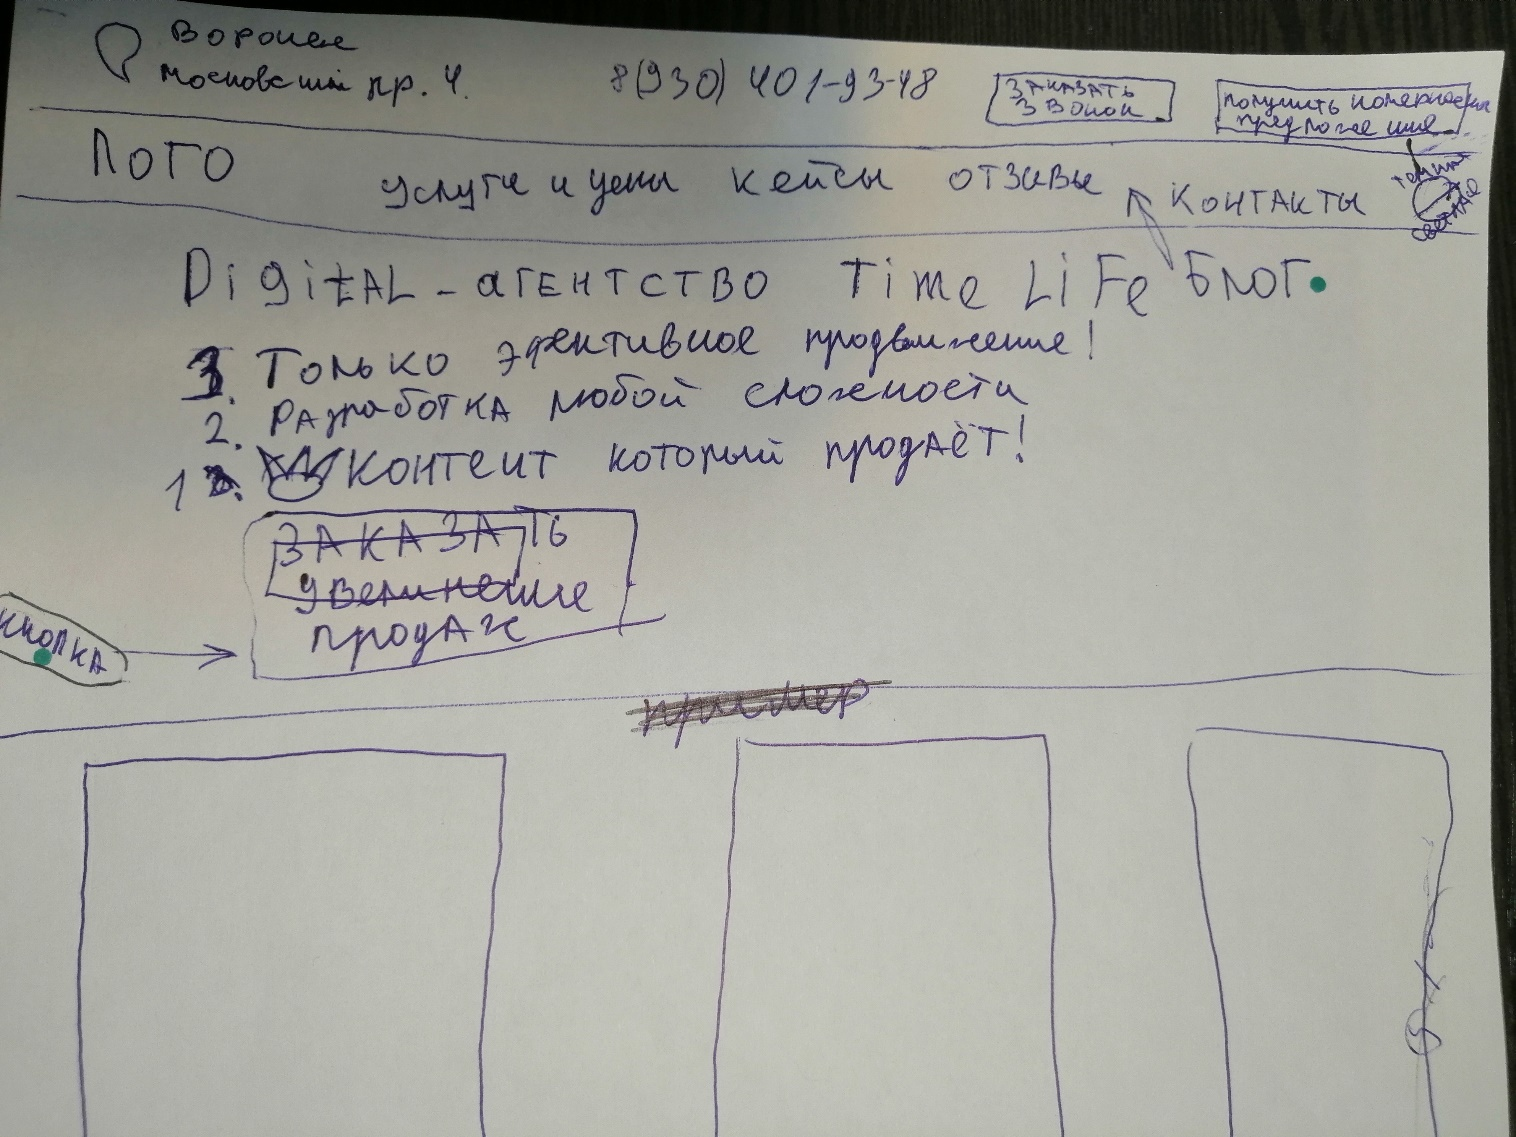 Воронеж
Московский пр. 4.
8(930) 401-93-48
ЗАКАЗАТЬ
ЗВОНОК
получить комерческое
предложение
Лого
Услуги и цены кейсы отзывы контакты
темная
светлая
Digital-агентство Time Life Блог
3. Только эфективное продвижение!
2. Разработка любой сложности
1. контент который продаёт!
ЗАКАЗАТЬ
увеличение
продаж
кнопка
пример